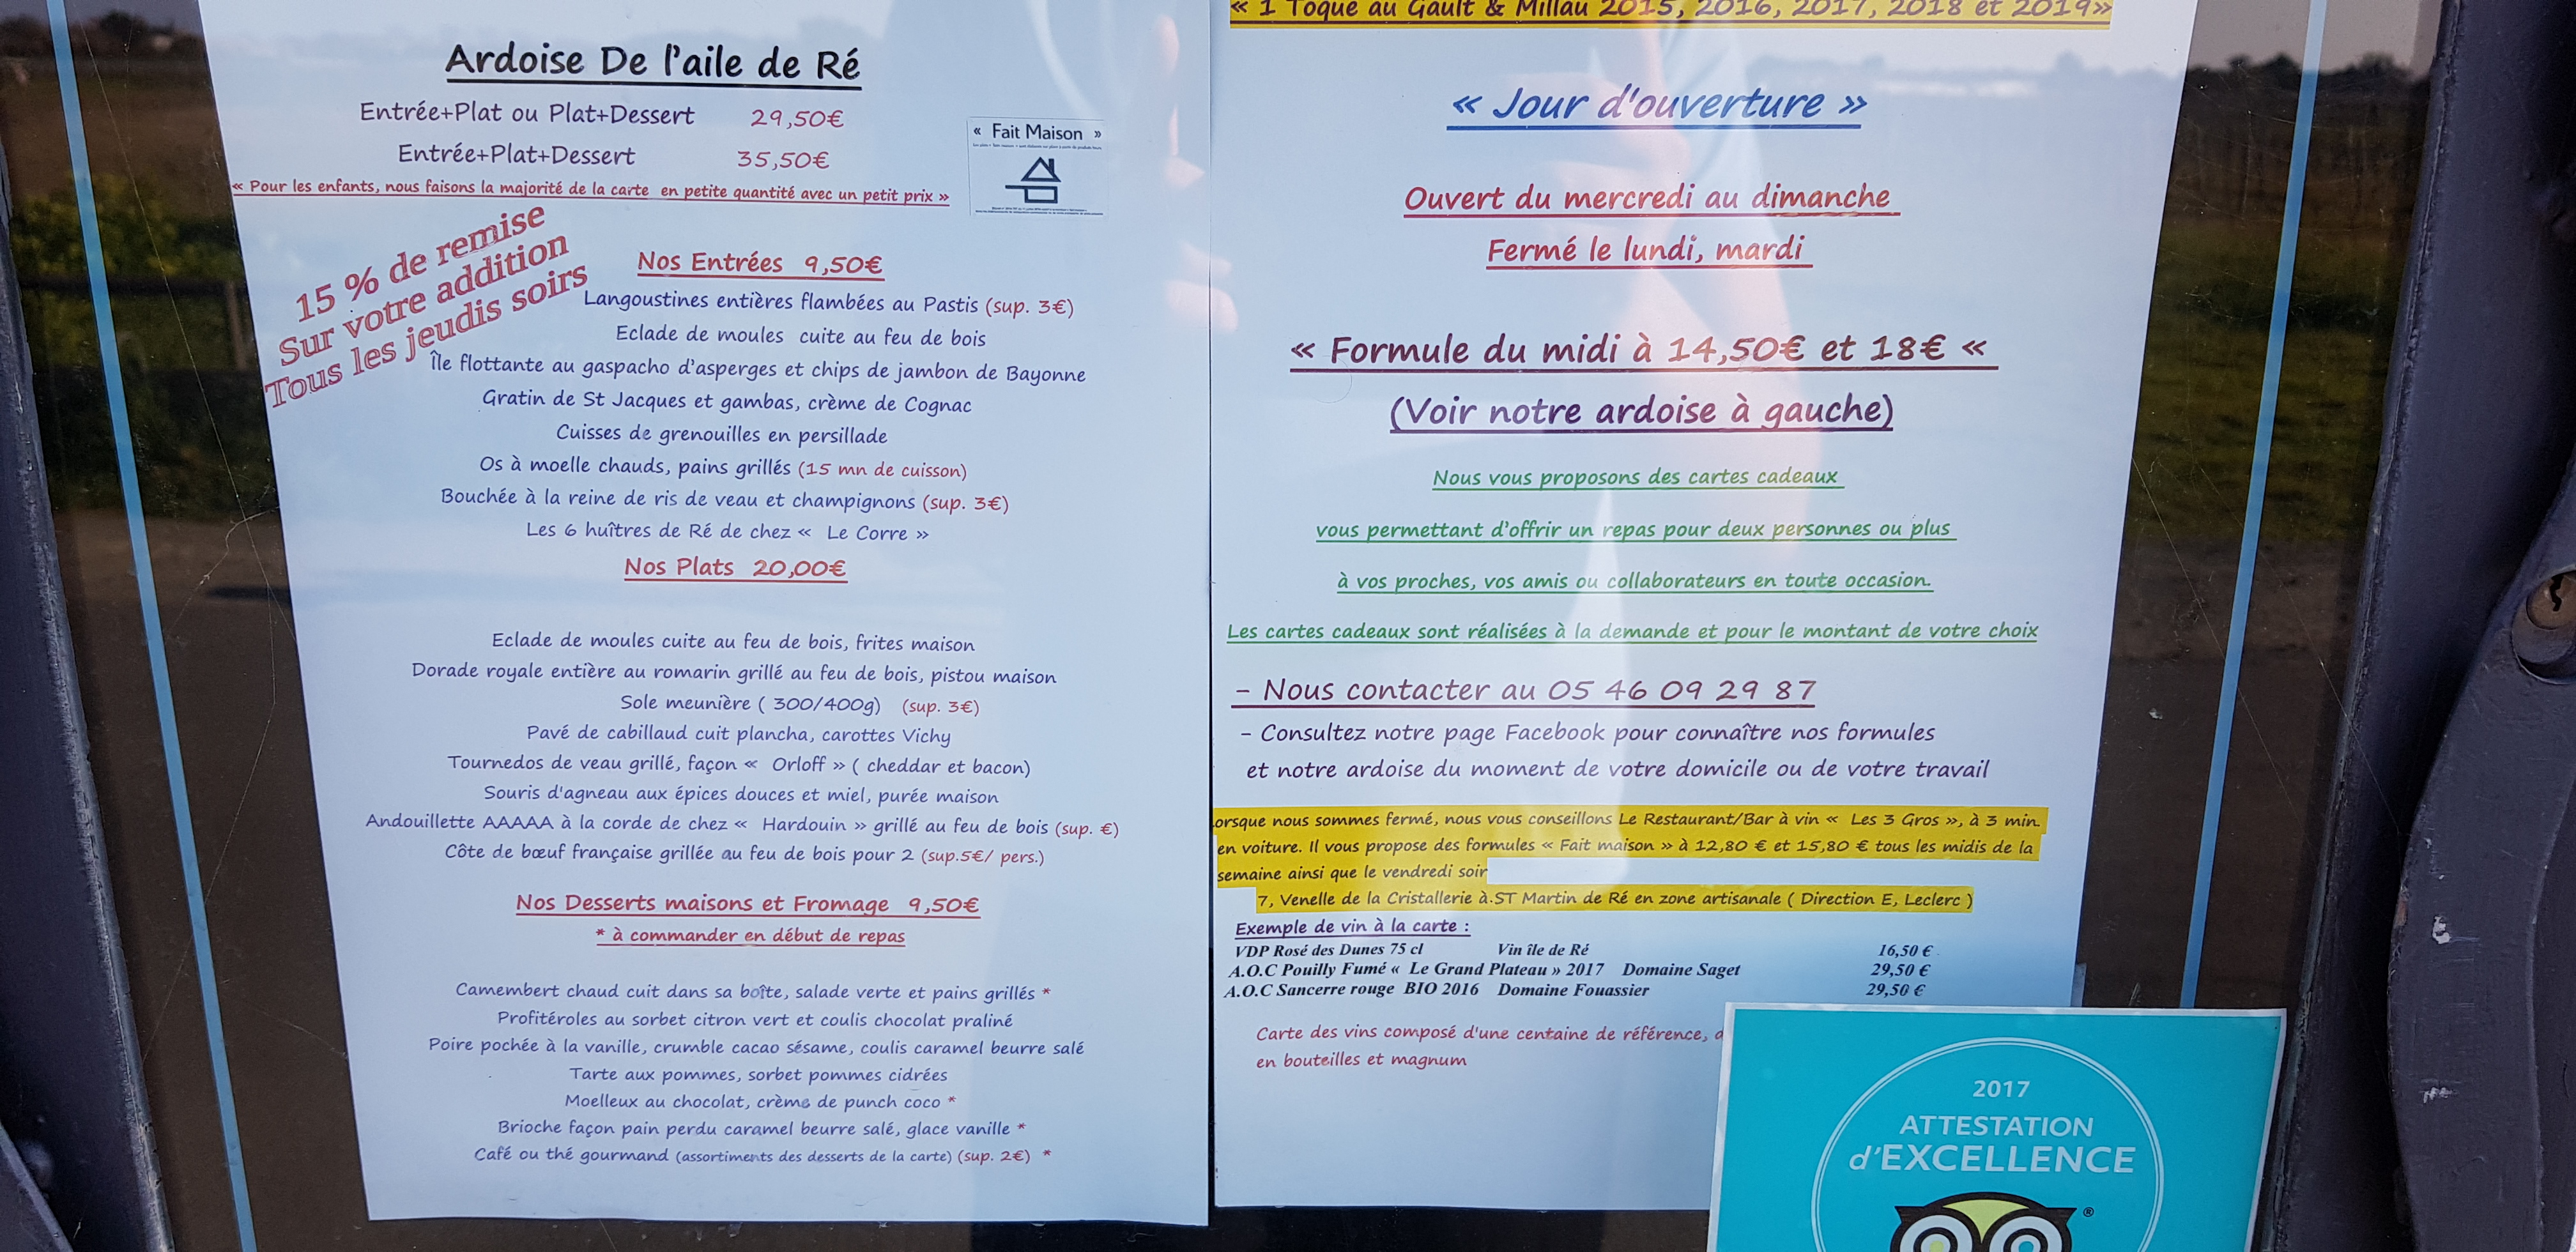 Ardoise De l'aile de Ré
Entrée+Plat ou Plat+Dessert 29,50€
Entrée+Plat+Dessert 35,50€
« Pour les enfants, nous faisons la majorité de la carte en petite quantité avec un petit prix »
« Fait Maison »
15 % de remise
Sur votre addition
Tous les jeudis soirs
Nos Entrées 9,50€
Langoustines entières flambées au Pastis (sup. 3€)
Eclade de moules cuite au feu de bois
Île flottante au gaspacho d'asperges et chips de jambon de Bayonne
Gratin de St Jacques et gambas, crème de Cognac
Cuisses de grenouilles en persillade
Os à moelle chauds, pains grillés (15 mn de cuisson)
Bouchée à la reine de ris de veau et champignons (sup. 3€)
Les 6 huîtres de Ré de chez « Le Corre »
Nos Plats 20,00€
Eclade de moules cuite au feu de bois, frites maison
Dorade royale entière au romarin grillé au feu de bois, pistou maison
Sole meunière ( 300/400g) (sup. 3€)
Pavé de cabillaud cuit plancha, carottes Vichy
Tournedos de veau grillé, façon « Orloff » ( cheddar et bacon)
Souris d'agneau aux épices douces et miel, purée maison
Andouillette AAAAA à la corde de chez « Hardouin » grillé au feu de bois (sup. €)
Côte de bœuf française grillée au feu de bois pour 2 (sup.5€/ pers.)
Nos Desserts maisons et Fromage 9,50€
* à commander en début de repas
Camembert chaud cuit dans sa boîte, salade verte et pains grillés *
Profitéroles au sorbet citron vert et coulis chocolat praliné
Poire pochée à la vanille, crumble cacao sésame, coulis caramel beurre salé
Tarte aux pommes, sorbet pommes cidrées
Moelleux au chocolat, crème de punch coco *
Brioche façon pain perdu caramel beurre salé, glace vanille *
Café ou thé gourmand (assortiments des desserts de la carte) (sup. 2€) *
« 1 Toque au Gault & Millau 2015, 2016, 2017, 2018 et 2019»
« Jour d'ouverture »
Ouvert du mercredi au dimanche
Fermé le lundi, mardi
« Formule du midi à 14,50€ et 18€ «
(Voir notre ardoise à gauche)
Nous vous proposons des cartes cadeaux
vous permettant d'offrir un repas pour deux personnes ou plus
à vos proches, vos amis ou collaborateurs en toute occasion.
Les cartes cadeaux sont réalisées à la demande et pour le montant de votre choix
- Nous contacter au 05 46 09 29 87
- Consultez notre page Facebook pour connaître nos formules
et notre ardoise du moment de votre domicile ou de votre travail
orsque nous sommes fermé, nous vous conseillons Le Restaurant/Bar à vin « Les 3 Gros », à 3 min.
en voiture. Il vous propose des formules « Fait maison » à 12,80 € et 15,80 € tous les midis de la
semaine ainsi que le vendredi soir
7, Venelle de la Cristallerie à.ST Martin de Ré en zone artisanale ( Direction E, Leclerc )
Exemple de vin à la carte :
VDP Rosé des Dunes 75 cl Vin île de Ré 16,50 €
A.O.C Pouilly Fumé « Le Grand Plateau » 2017 Domaine Saget 29,50 €
A.O.C Sancerre rouge BIO 2016 Domaine Fouassier 29,50 €
Carte des vins composé d'une centaine de référence, d
en bouteilles et magnum
2017
ATTESTATION
d'EXCELLENCE
®